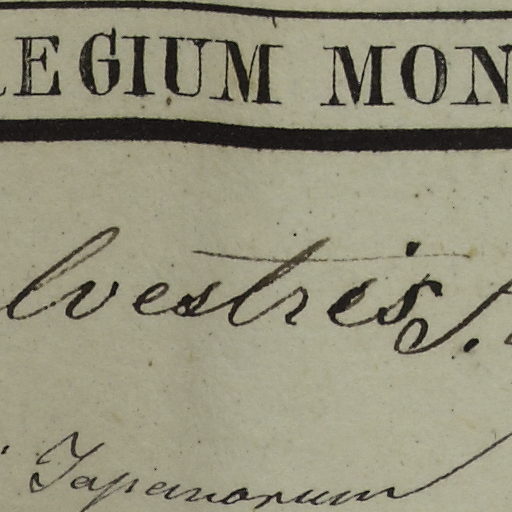 EGIUM MON
lvestris.
Japanorum